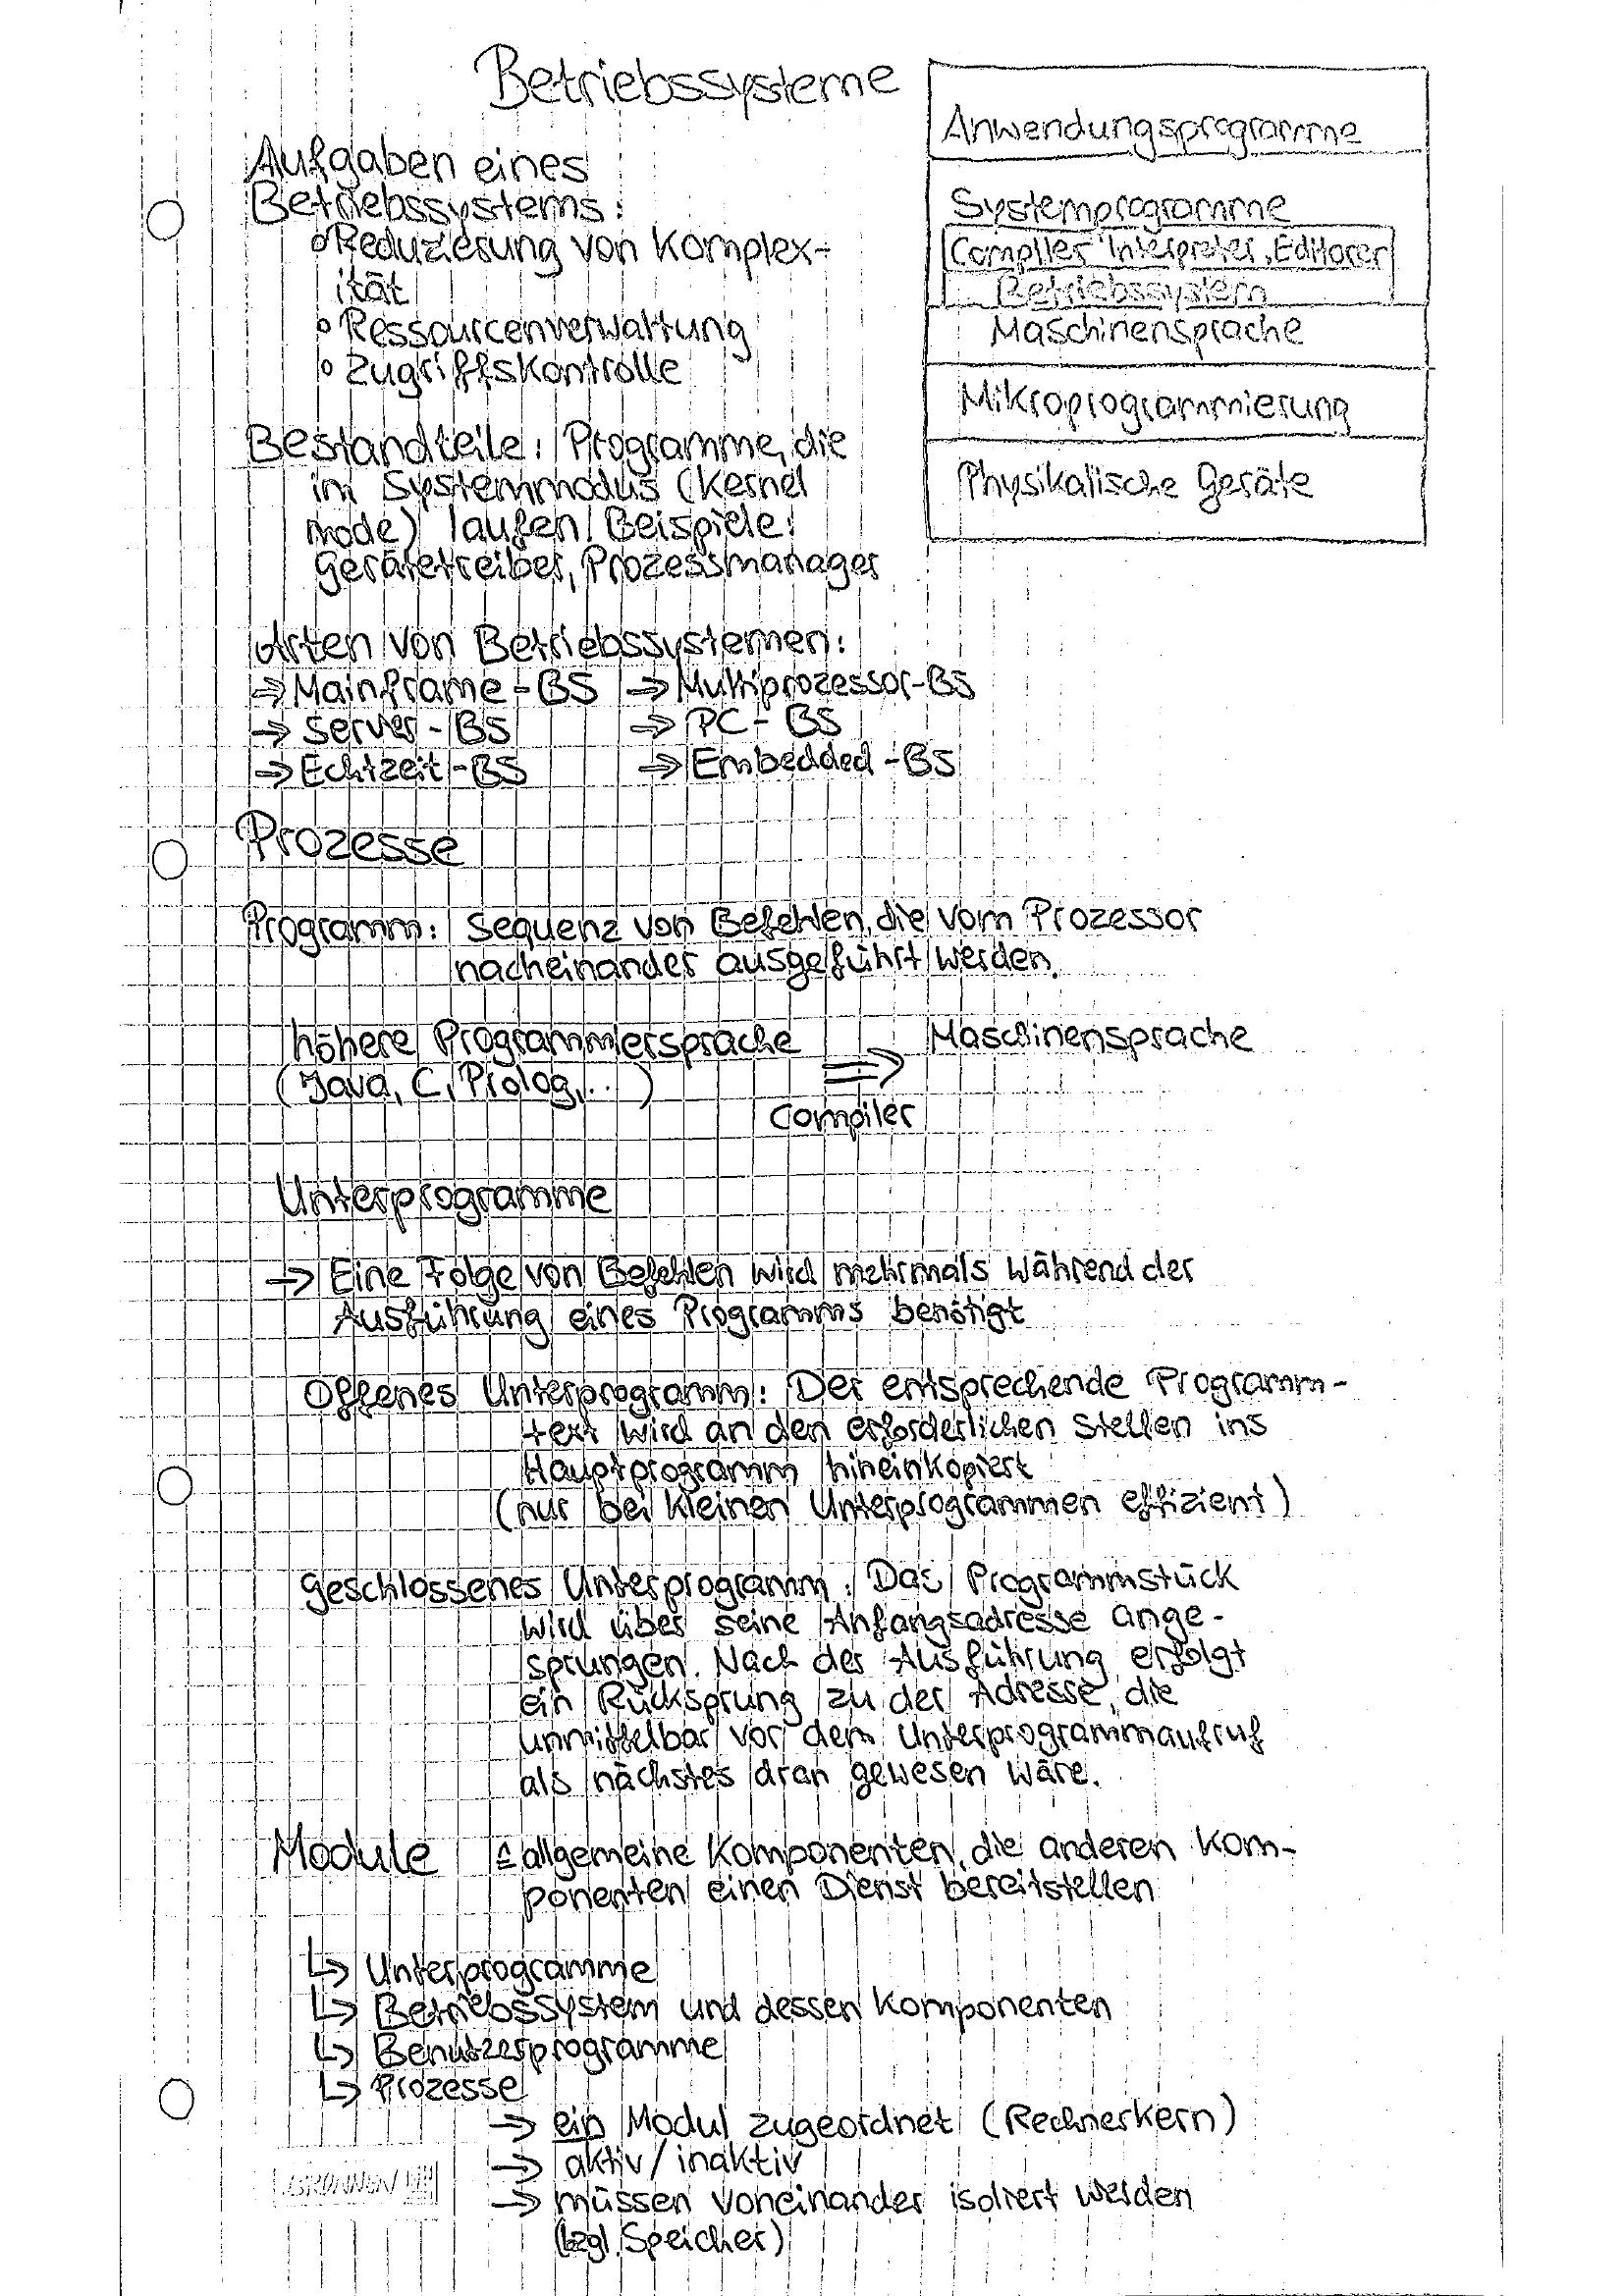 Betriebssysteme
Aufgaben eines
Betriebssystems:
° Reduzierung von Komplex-
ität
° Ressourcenverwaltung
° Zugriffskontrolle
Anwendungsprogramme
Systemprogramme
Compiler Interpreter, Editoren
Betriebssystem
Maschinensprache
Mikroprogrammierung
Physikalische Geräte
Bestandteile: Programme, die
im Systemmodus (Kernel
mode) laufen! Beispiele:
Gerätetreiber, Prozessmanager
Arten von Betriebssystemen:
⇒ Mainframe-BS ⇒ Multiprozessor-BS
⇒ Server-BS ⇒ PC-BS
⇒ Echtzeit-BS ⇒ Embedded-BS
Prozesse
Programm: Sequenz von Befehlen, die vom Prozessor
nacheinander ausgeführt werden.
höhere Programmiersprache ⇒ Maschinensprache
(Java, C, Prolog,...)
Compiler
Unterprogramme
→ Eine Folge von Befehlen wird mehrmals während der
Ausführung eines Programms benötigt
Offenes Unterprogramm: Der entsprechende Programm-
text wird an den erforderlichen Stellen ins
Hauptprogramm hineinkopiert
(nur bei kleinen Unterprogrammen effizient)
geschlossenes Unterprogramm: Das Programmstück
wird über seine Anfangsadresse ange-
sprungen. Nach der Ausführung erfolgt
ein Rücksprung zu der Adresse, die
unmittelbar vor dem Unterprogrammaufruf
als nächstes dran gewesen wäre.
Module ≙ allgemeine Komponenten, die anderen Kom-
ponenten einen Dienst bereitstellen
↳ Unterprogramme
↳ Betriebssystem und dessen Komponenten
↳ Benutzerprogramme
↳ Prozesse
→ ein Modul zugeordnet (Rechnerkern)
→ aktiv / inaktiv
→ müssen voneinander isoliert werden
(bzgl. Speicher)